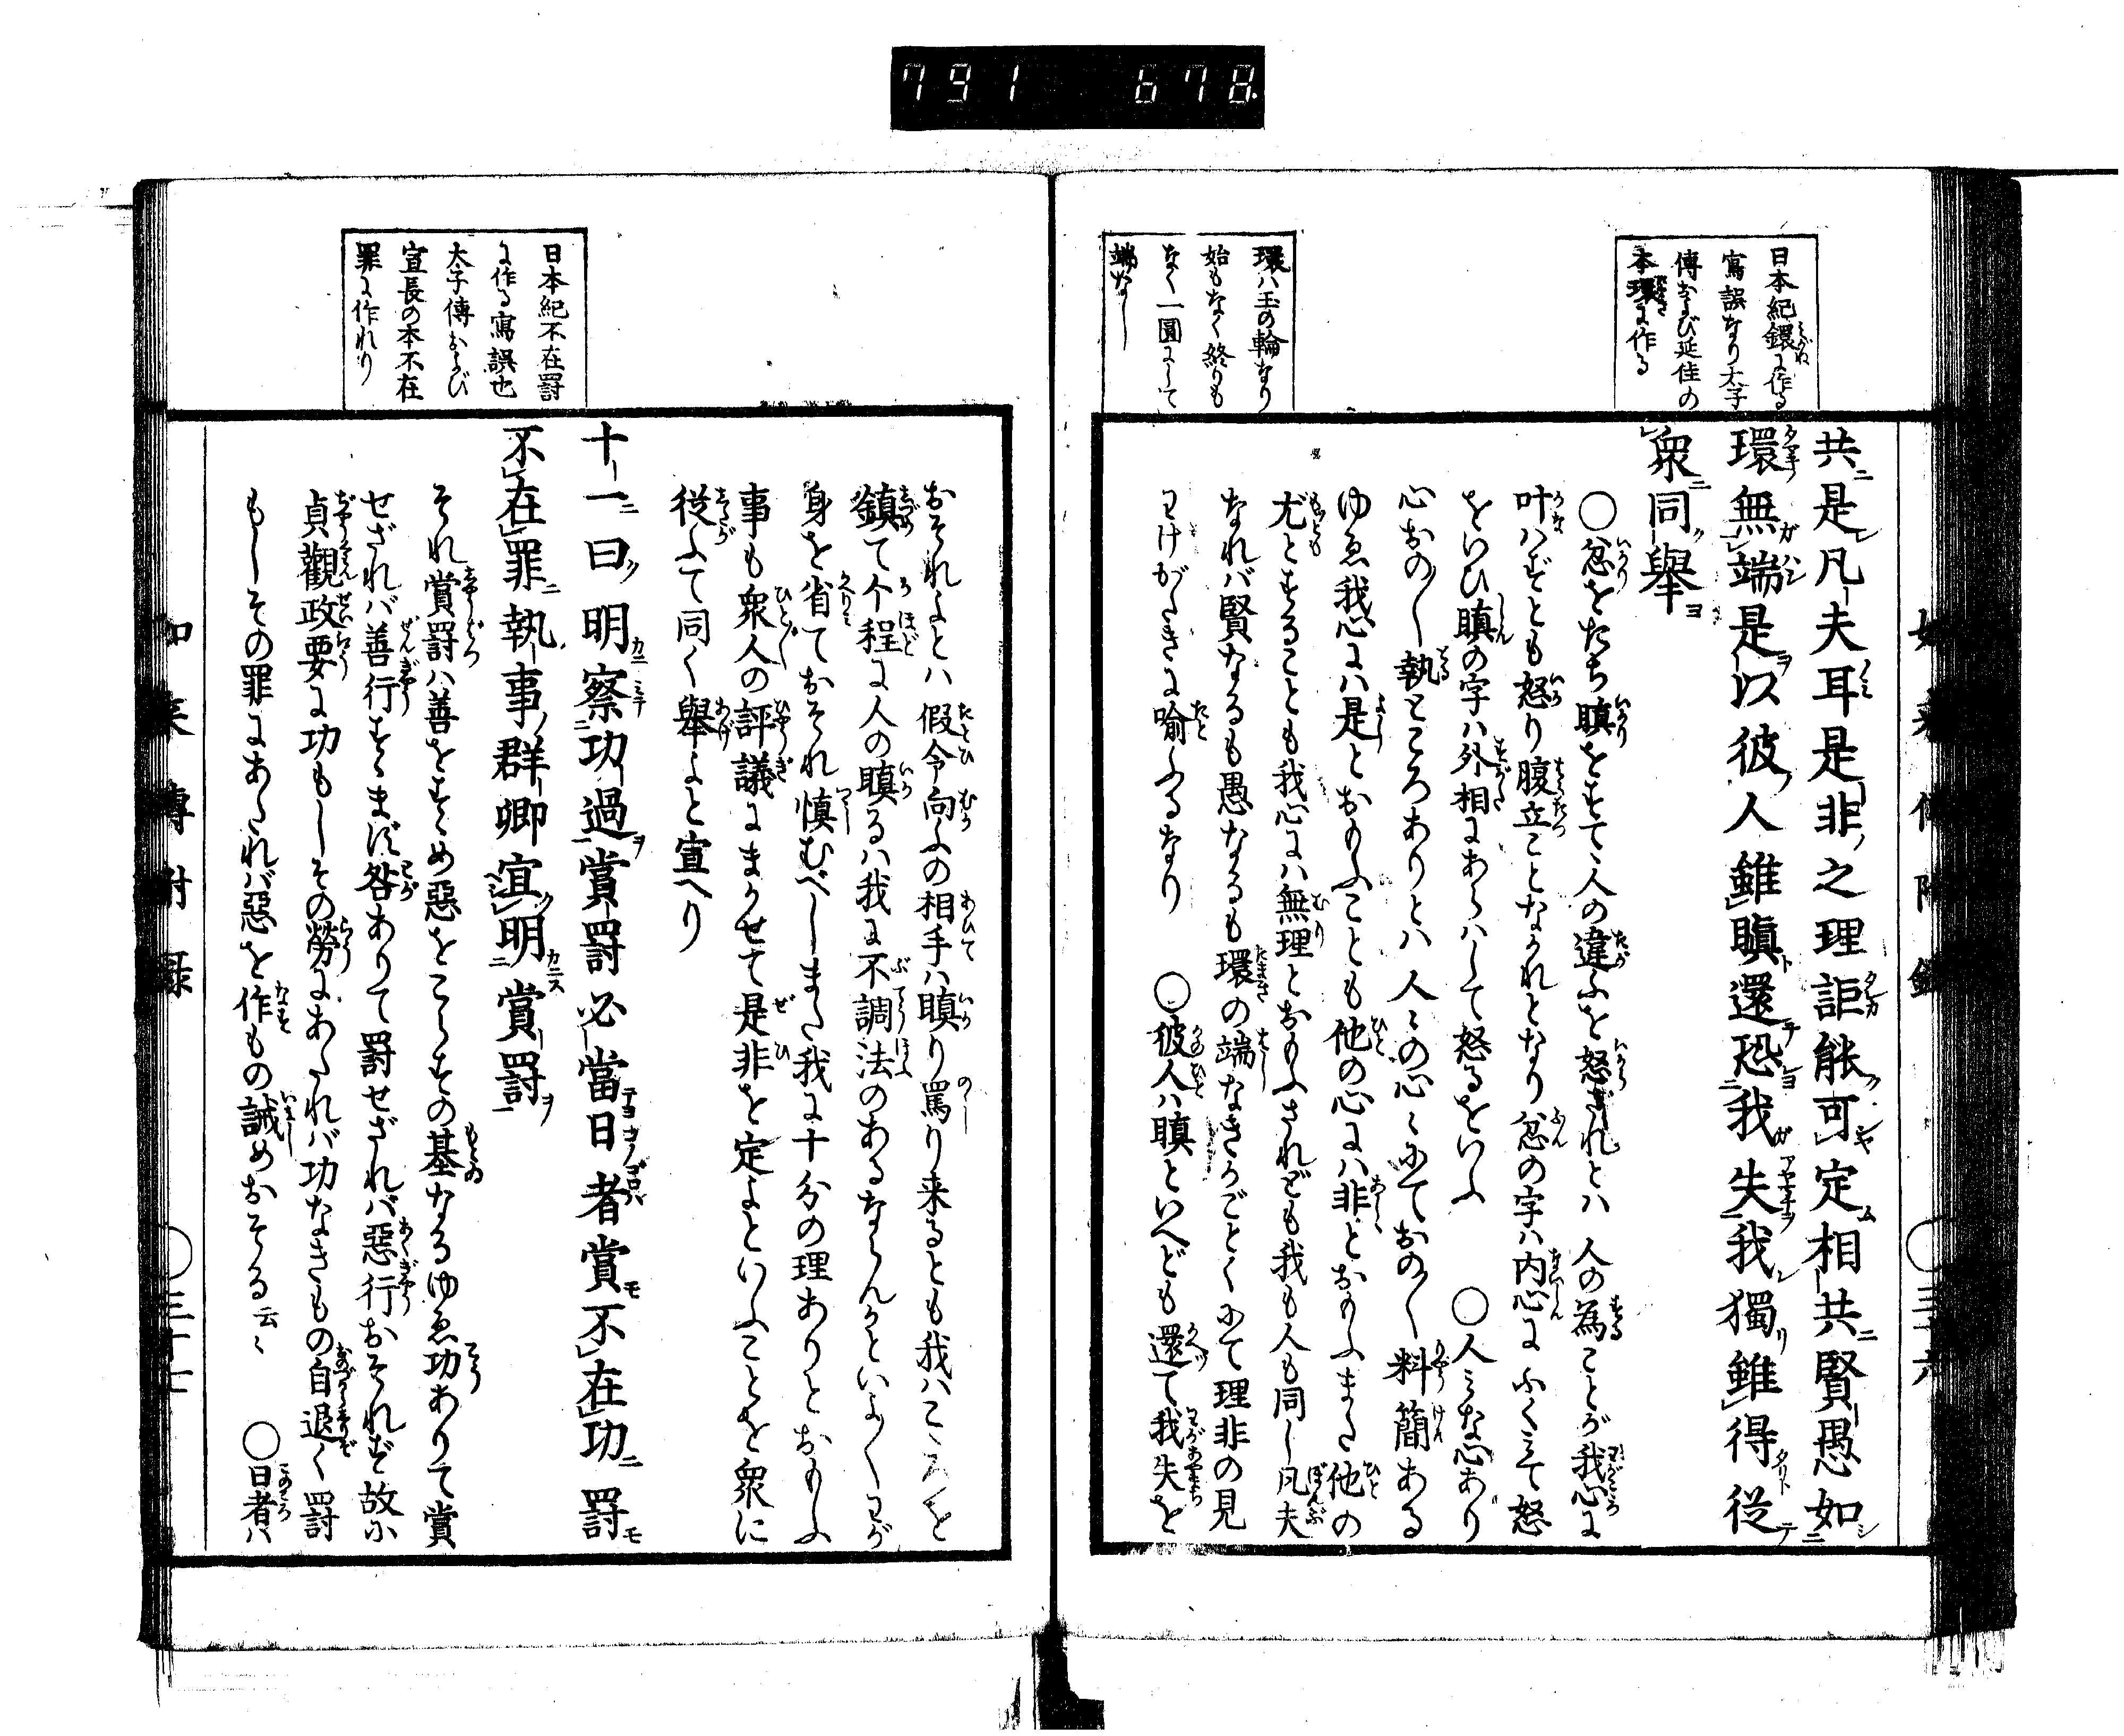 791 678
日本紀鐶に作る
寫誤なり太子
傳および延佳の
本環に作る
共是凡夫耳是非之理詎能可定相共賢愚如
環無端是以彼人雖瞋還恐我失我獨雖得從
衆同擧
環ハ玉の輪なり
始もなく終りも
なく一圓にして
端なし
〇忿をたち瞋をすて人の違ふを怒ざれとハ人の為ことが我心に
叶ハずとも怒り腹立ことなかれとなり忿の字ハ内心にふくみて怒
をいひ瞋の字ハ外相にあらハして怒るをいふ 〇人みな心あり
心おの〱執ところありとハ人〻の心〻にておの〱料簡ある
ゆゑ我心にハ是とおもふことも他の心にハ非とおもふまた他の
尤とすることも我心にハ無理とおもふされども我も人も同し凡夫
なれバ賢なるも愚なるも環の端なきがごとくにて理非の見
わけがたきに喩ふるなり 〇彼人ハ瞋といへども還て我失を
おそれよとハ假令向ふの相手ハ瞋り罵り来るとも我ハこゝろを
鎮て个程に人の瞋るハ我に不調法のあるならんかといよ〱わが
身を省ておそれ慎むべしまた我に十分の理ありとおもふ
事も衆人の評議にまかせて是非を定よといふことを衆に
従ふて同く擧よと宣へり
日本紀不在罸
に作る寫誤也
太子傳および
宣長の本不在
罪に作れり
十一曰明察功過賞罸必當日者賞不在功罸
不在罪執事群卿宜明賞罸
それ賞罸ハ善をすゝめ惡をこらすの基なるゆゑ功ありて賞
せざれバ善行すゝまず咎ありて罸せざれバ惡行おそれず故に
貞觀政要に功もしその勞にあたれバ功なきもの自退く罸
もしその罪にあたれバ惡を作もの誡めおそる云〻 〇日者ハ